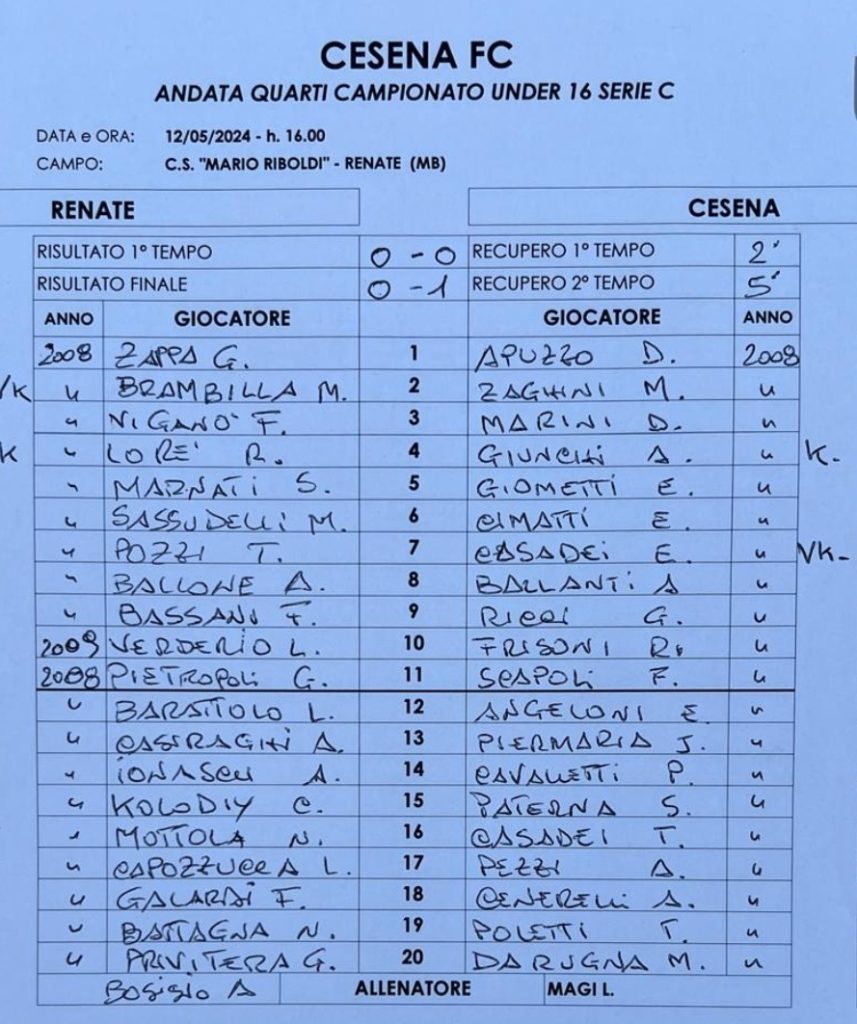 CESENA FC
ANDATA QUARTI CAMPIONATO UNDER 16 SERIE C
DATA e ORA: 12/05/2024 - h. 16.00
CAMPO: C.S. "MARIO RIBOLDI" - RENATE (MB)
RENATE CESENA
RISULTATO 1° TEMPO 0 - 0 RECUPERO 1° TEMPO 2'
RISULTATO FINALE 0 - 1 RECUPERO 2° TEMPO 5'
ANNO GIOCATORE GIOCATORE ANNO
2008 ZAPPA G. 1 APUZZO D. 2008
VK " BRAMBILLA M. 2 ZAGHINI M. "
" NIGANO' F. 3 MARINI D. "
K " LORE' R. 4 GIUNCHI A. " K.
" MARNATI S. 5 GIOMETTI E. "
" SASSUDELLI M. 6 CIMATTI E. "
" POZZI T. 7 CASADEI E. " VK.
" BALLONE A. 8 BALLANTI A "
" BASSANI F. 9 RICCI G. "
2009 VERDERIO L. 10 FRISONI R. "
2008 PIETROPOLI G. 11 SCAPOLI F. "
" BARATTOLO L. 12 ANGELONI E. "
" CASIRAGHI A. 13 PIERMARIA J. "
" IONASCU A. 14 CAVALLETTI P. "
" KOLODIY C. 15 PATERNA S. "
" MOTTOLA N. 16 CASADEI T. "
" CAPOZZUCCA L. 17 PEZZI A. "
" GALARDI F. 18 CENERELLI A. "
" BATTAGNA N. 19 POLETTI T. "
" PRIVITERA G. 20 DARUGNA M. "
BOSISIO A ALLENATORE MAGI L.